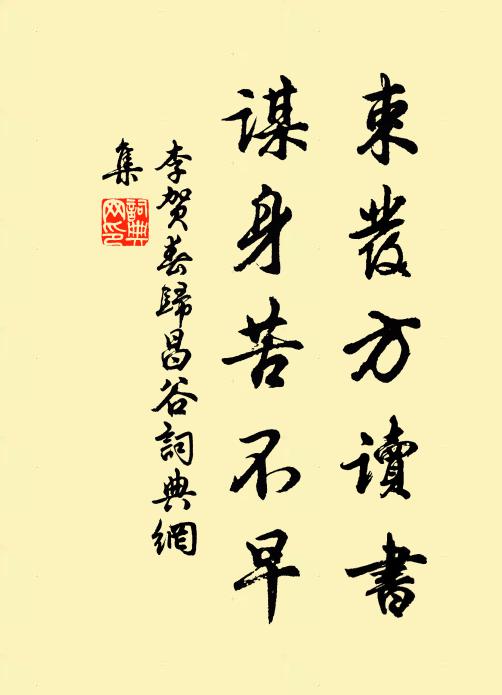 束發方讀書
謀身苦不早
李賀春歸昌谷詞典網
集
詞典
网印